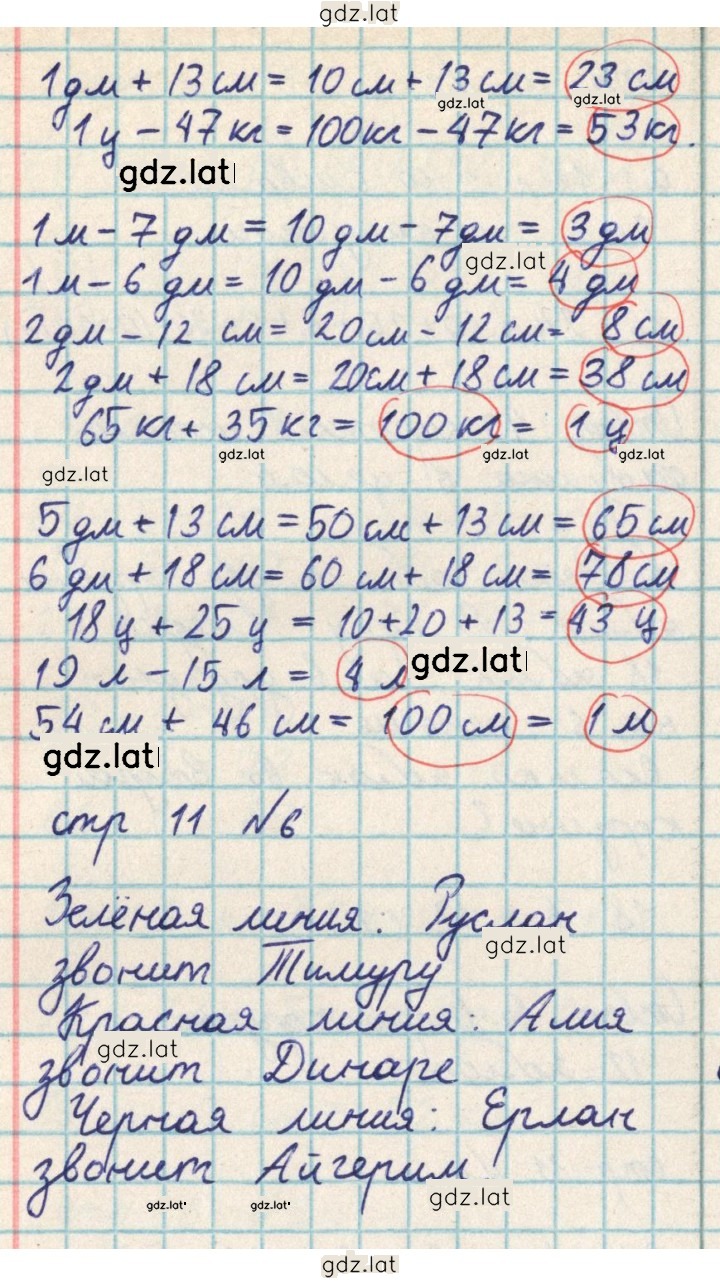 gdz.lat
1 дм + 13 см = 10 см + 13 см = 23 см
gdz.lat gdz.lat
1 ц - 47 кг = 100 кг - 47 кг = 53 кг.
gdz.lat
1 м - 7 дм = 10 дм - 7 дм = 3 дм
gdz.lat
1 м - 6 дм = 10 дм - 6 дм = 4 дм
2 дм - 12 см = 20 см - 12 см = 8 см
2 дм + 18 см = 20 см + 18 см = 38 см
65 кг + 35 кг = 100 кг = 1 ц
gdz.lat gdz.lat gdz.lat
gdz.lat
5 дм + 13 см = 50 см + 13 см = 65 см
6 дм + 18 см = 60 см + 18 см = 78 см
18 ц + 25 ц = 10 + 20 + 13 = 43 ц
19 л - 15 л = 4 л
gdz.lat
54 см + 46 см = 100 см = 1 м
gdz.lat
стр 11 №6
Зелёная линия. Руслан
gdz.lat
звонит Тимуру
Красная линия: Алия
gdz.lat
звонит Динаре
Черная линия: Ерлан
звонит Айгерим
gdz.lat gdz.lat gdz.lat
gdz.lat